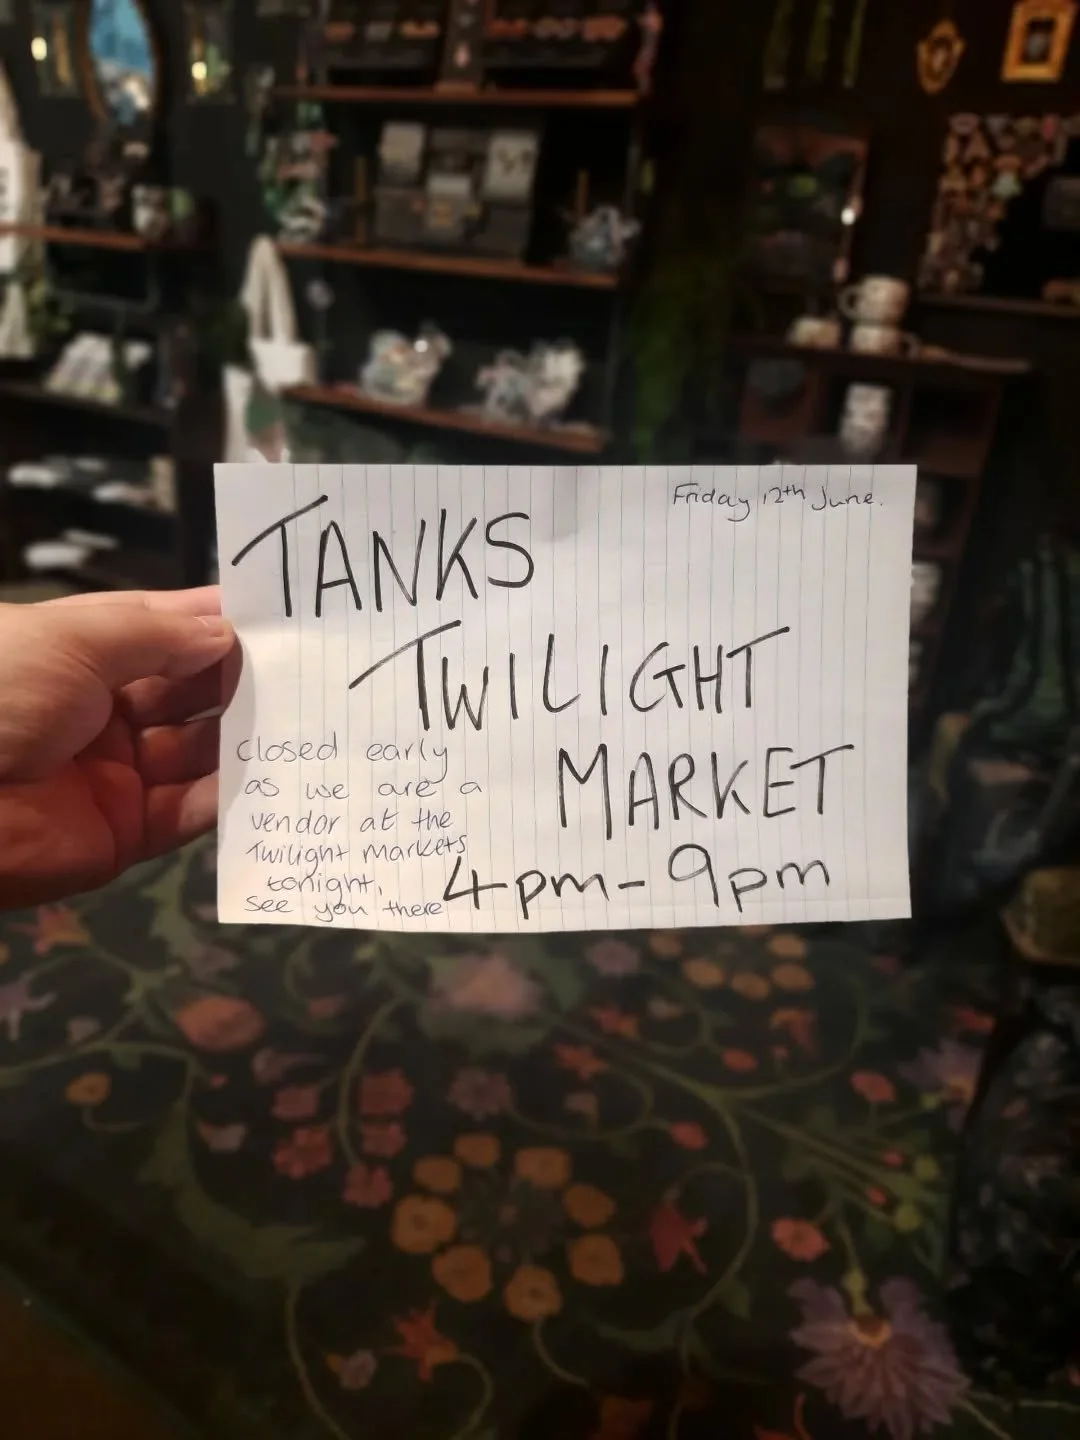 Friday 12th June.
TANKS
TWILIGHT
MARKET
4pm-9pm
closed early
as we are a
vendor at the
Twilight Markets
tonight,
see you there